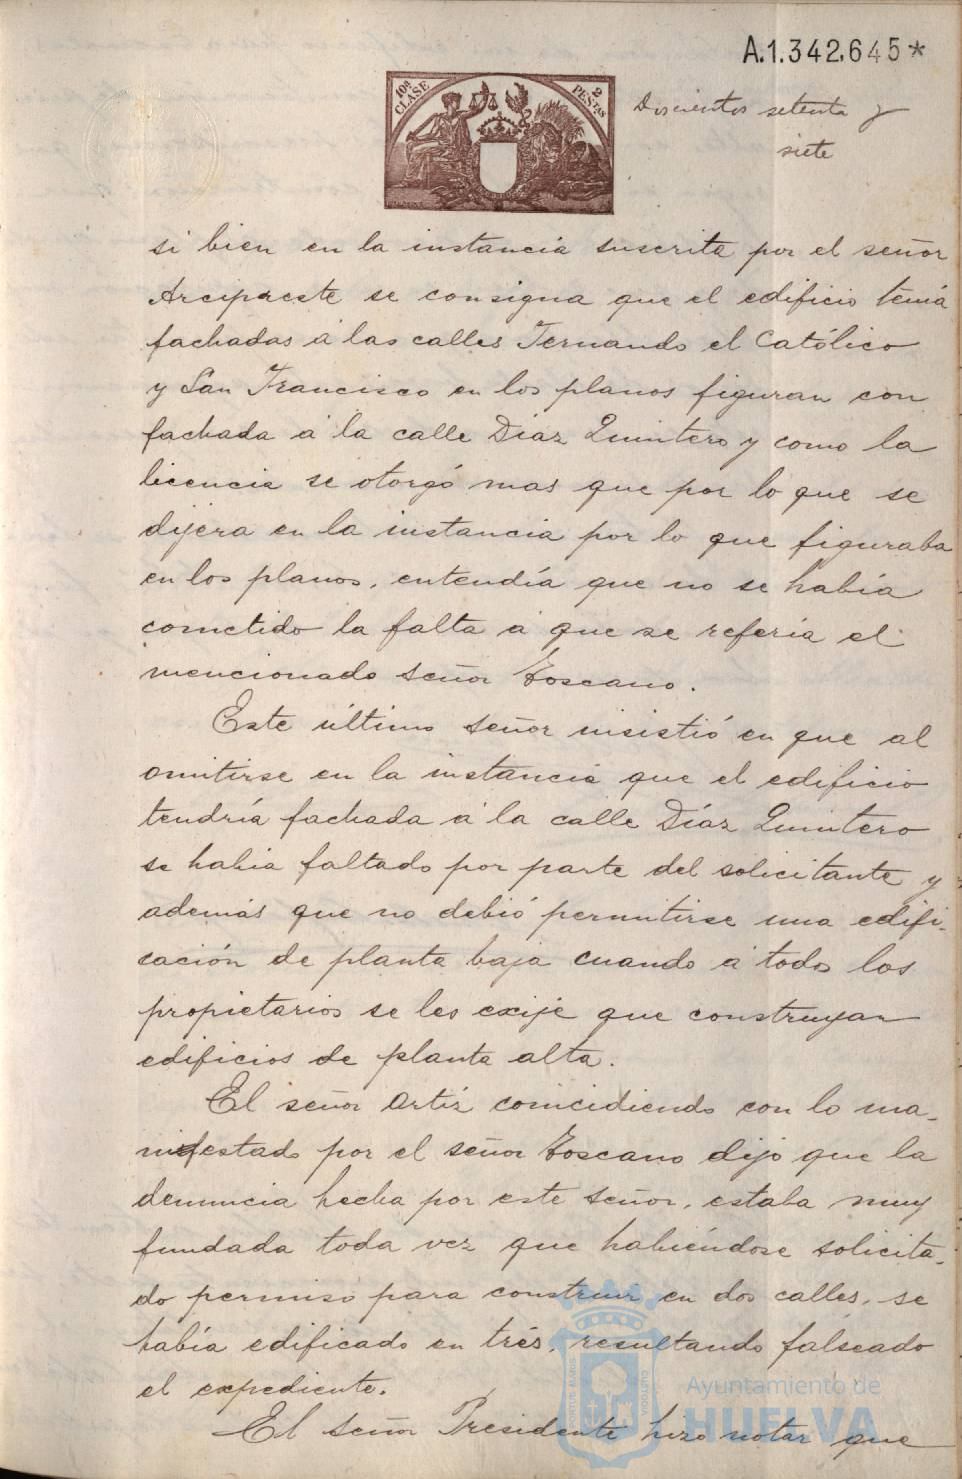 A.1.342.645*
10ª CLASE
2 PESTAS
Doscientos setenta y
siete
si bien en la instancia suscrita por el señor
Arcipreste se consigna que el edificio tenía
fachadas á las calles Fernando el Católico
y San Francisco en los planos figuran con
fachada á la calle Díaz Quintero y como la
licencia se otorgó mas que por lo que se
dijera en la instancia por lo que figuraba
en los planos, entendía que no se había
cometido la falta á que se refería el
mencionado señor Toscano.
Este último señor insistió en que al
omitirse en la instancia que el edificio
tendría fachada á la calle Díaz Quintero
se había faltado por parte del solicitante y
además que no debió permitirse una edifi-
cación de planta baja cuando á todos los
propietarios se les exije que construyan
edificios de planta alta.
El señor Ortiz coincidiendo con lo ma-
nifestado por el señor Toscano dijo que la
denuncia hecha por este señor, estaba muy
fundada toda vez que habiéndose solicita-
do permiso para construir en dos calles, se
había edificado en trés, resultando falseado
el expediente.
El señor Presidente hizo notar que
Ayuntamiento de
HUELVA